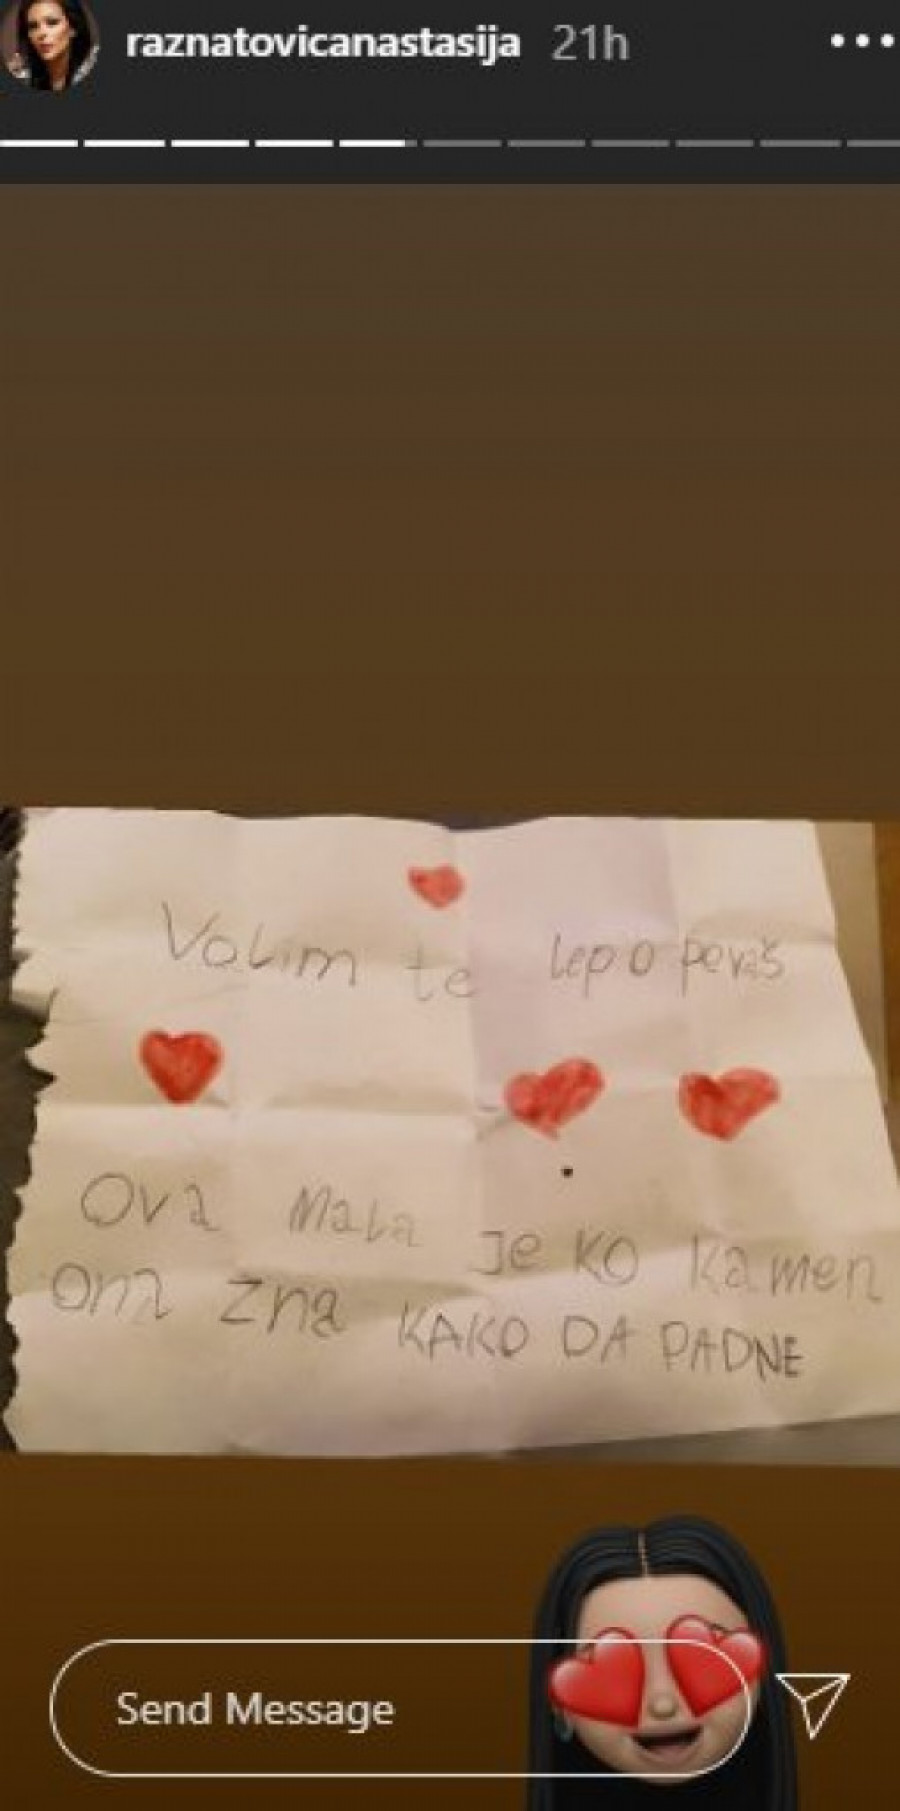 raznatovicanastasija 21h
Volim te lepo pevaš
Ova Mala je ko kamen
ona zna KAKO DA PADNE
Send Message